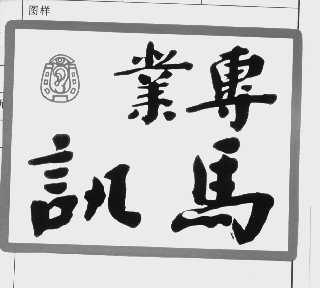 图样
專業
馬訊